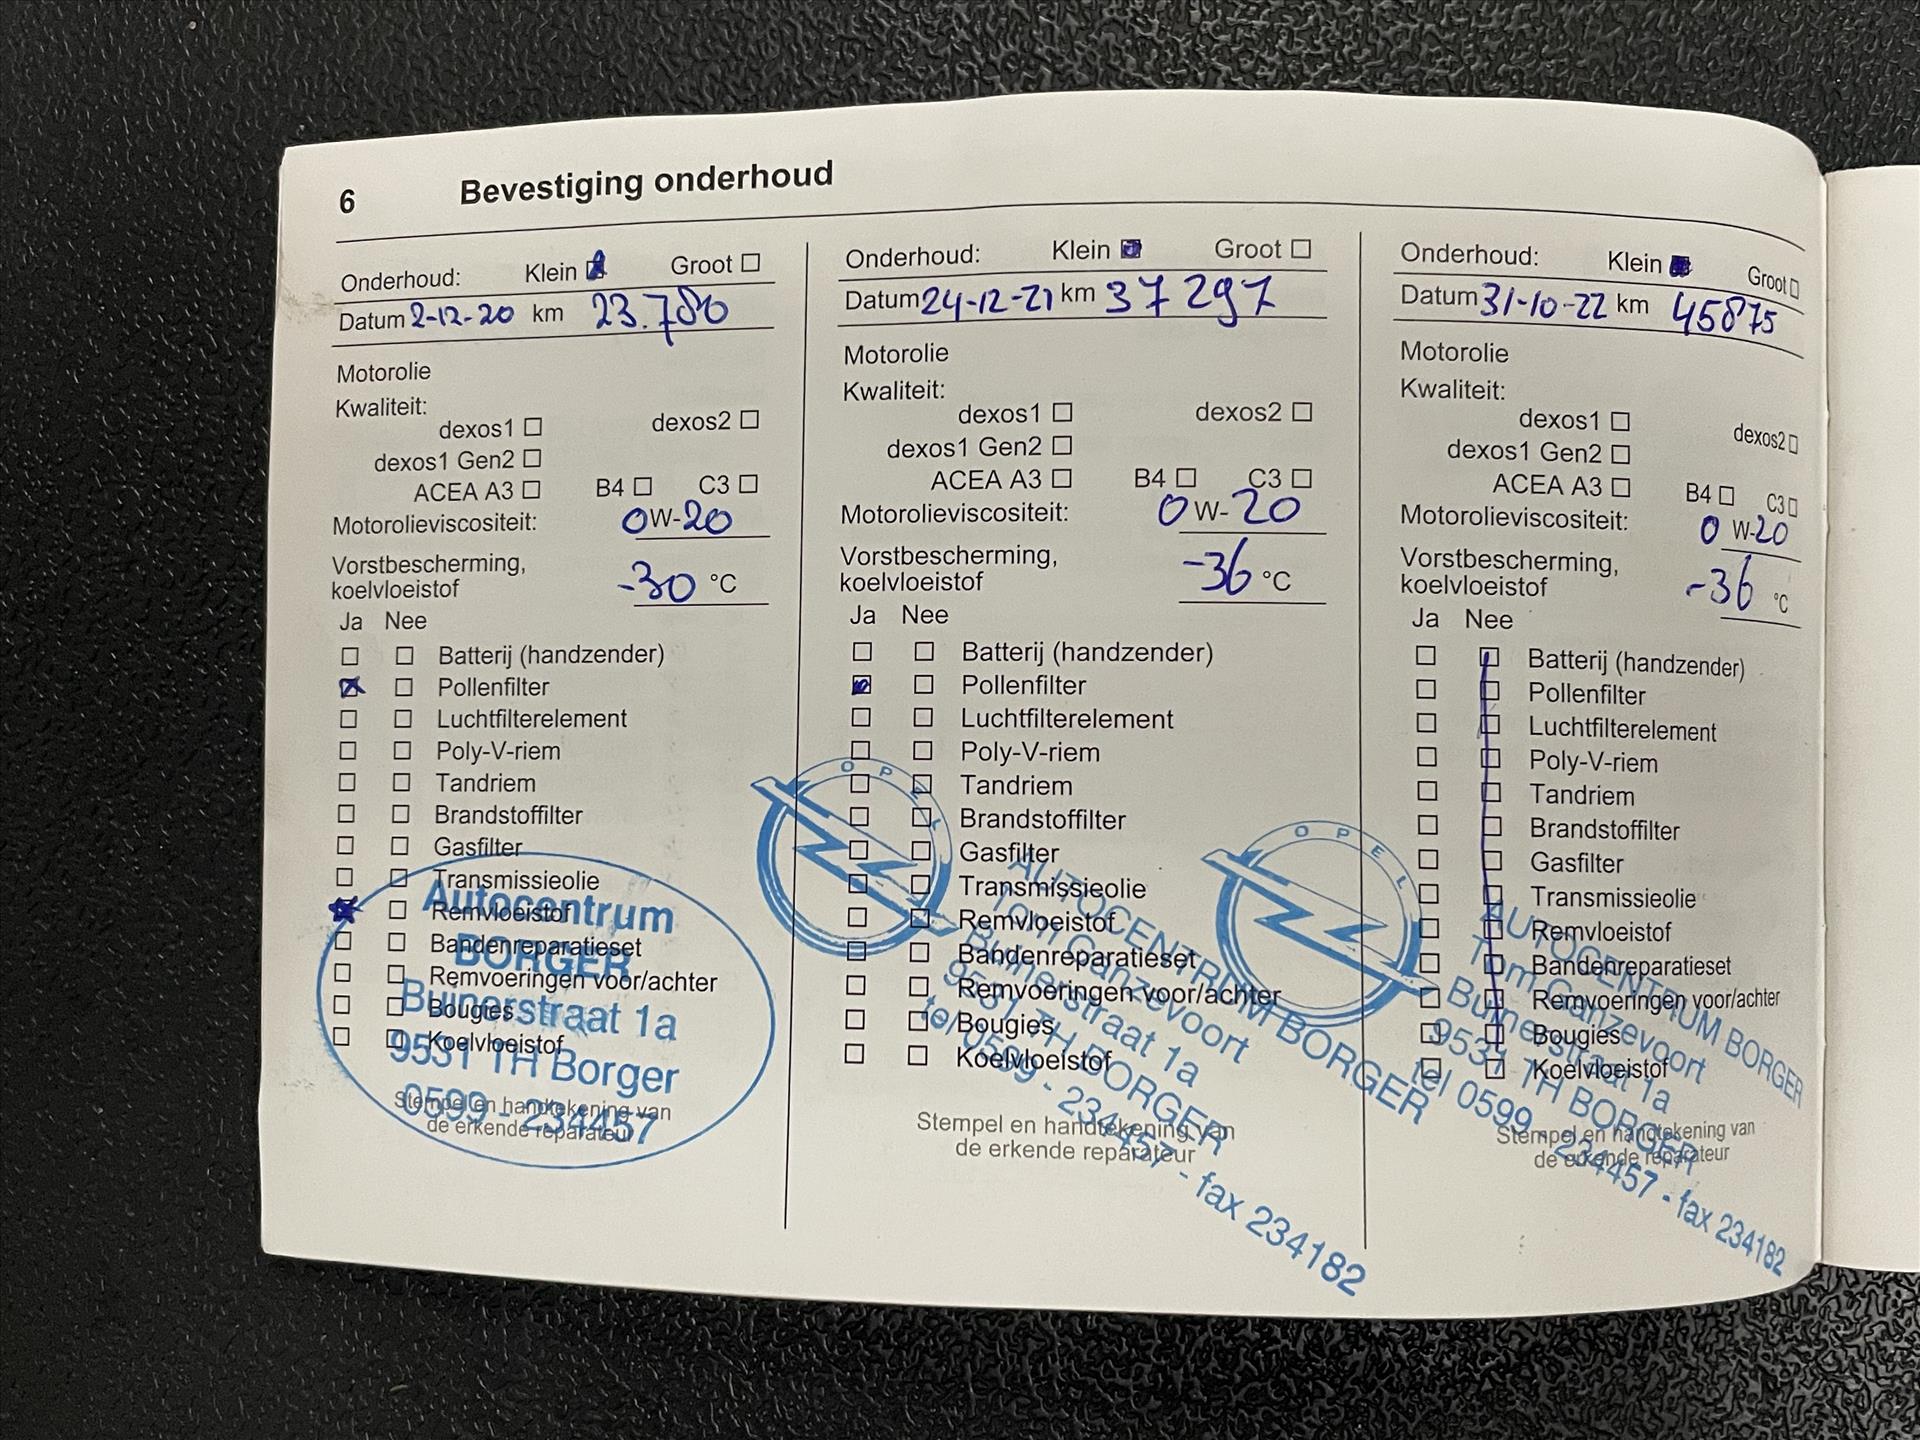 6 Bevestiging onderhoud
Onderhoud: Klein Groot
Datum 2-12-20 km 23.780
Motorolie
Kwaliteit:
dexos1 dexos2
dexos1 Gen2
ACEA A3 B4 C3
Motorolieviscositeit: 0W-20
Vorstbescherming,
koelvloeistof -30 °C
Ja Nee
Batterij (handzender)
Pollenfilter
Luchtfilterelement
Poly-V-riem
Tandriem
Brandstoffilter
Gasfilter
Transmissieolie
Remvloeistof
Bandenreparatieset
Remvoeringen voor/achter
Bougies
Koelvloeistof
Stempel en handtekening van
de erkende reparateur
Autocentrum
BORGER
Buinerstraat 1a
9531 TH Borger
0599 - 234457
Onderhoud: Klein Groot
Datum 24-12-21 km 37297
Motorolie
Kwaliteit:
dexos1 dexos2
dexos1 Gen2
ACEA A3 B4 C3
Motorolieviscositeit: 0 W-20
Vorstbescherming,
koelvloeistof -36 °C
Ja Nee
Batterij (handzender)
Pollenfilter
Luchtfilterelement
Poly-V-riem
Tandriem
Brandstoffilter
Gasfilter
Transmissieolie
Remvloeistof
Bandenreparatieset
Remvoeringen voor/achter
Bougies
Koelvloeistof
Stempel en handtekening van
de erkende reparateur
OPEL
AUTOCENTRUM BORGER
Tom Ganzevoort
Buinerstraat 1a
9531 TH BORGER
tel 0599 - 234457 - fax 234182
Onderhoud: Klein Groot
Datum 31-10-22 km 45875
Motorolie
Kwaliteit:
dexos1 dexos2
dexos1 Gen2
ACEA A3 B4 C3
Motorolieviscositeit: 0 W-20
Vorstbescherming,
koelvloeistof -36 °C
Ja Nee
Batterij (handzender)
Pollenfilter
Luchtfilterelement
Poly-V-riem
Tandriem
Brandstoffilter
Gasfilter
Transmissieolie
Remvloeistof
Bandenreparatieset
Remvoeringen voor/achter
Bougies
Koelvloeistof
Stempel en handtekening van
de erkende reparateur
OPEL
AUTOCENTRUM BORGER
Tom Ganzevoort
Buinerstraat 1a
9531 TH BORGER
tel 0599 - 234457 - fax 234182